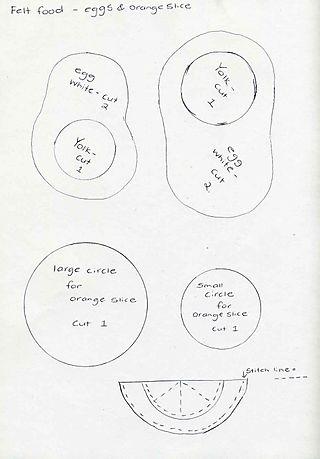 Felt food - eggs & orange slice
egg
white - cut
2
Yolk -
cut
1
Yolk -
cut
1
egg
white -
cut
2
large circle
for
orange slice
cut 1
Small
circle
for
orange slice
cut 1
Stitch line =